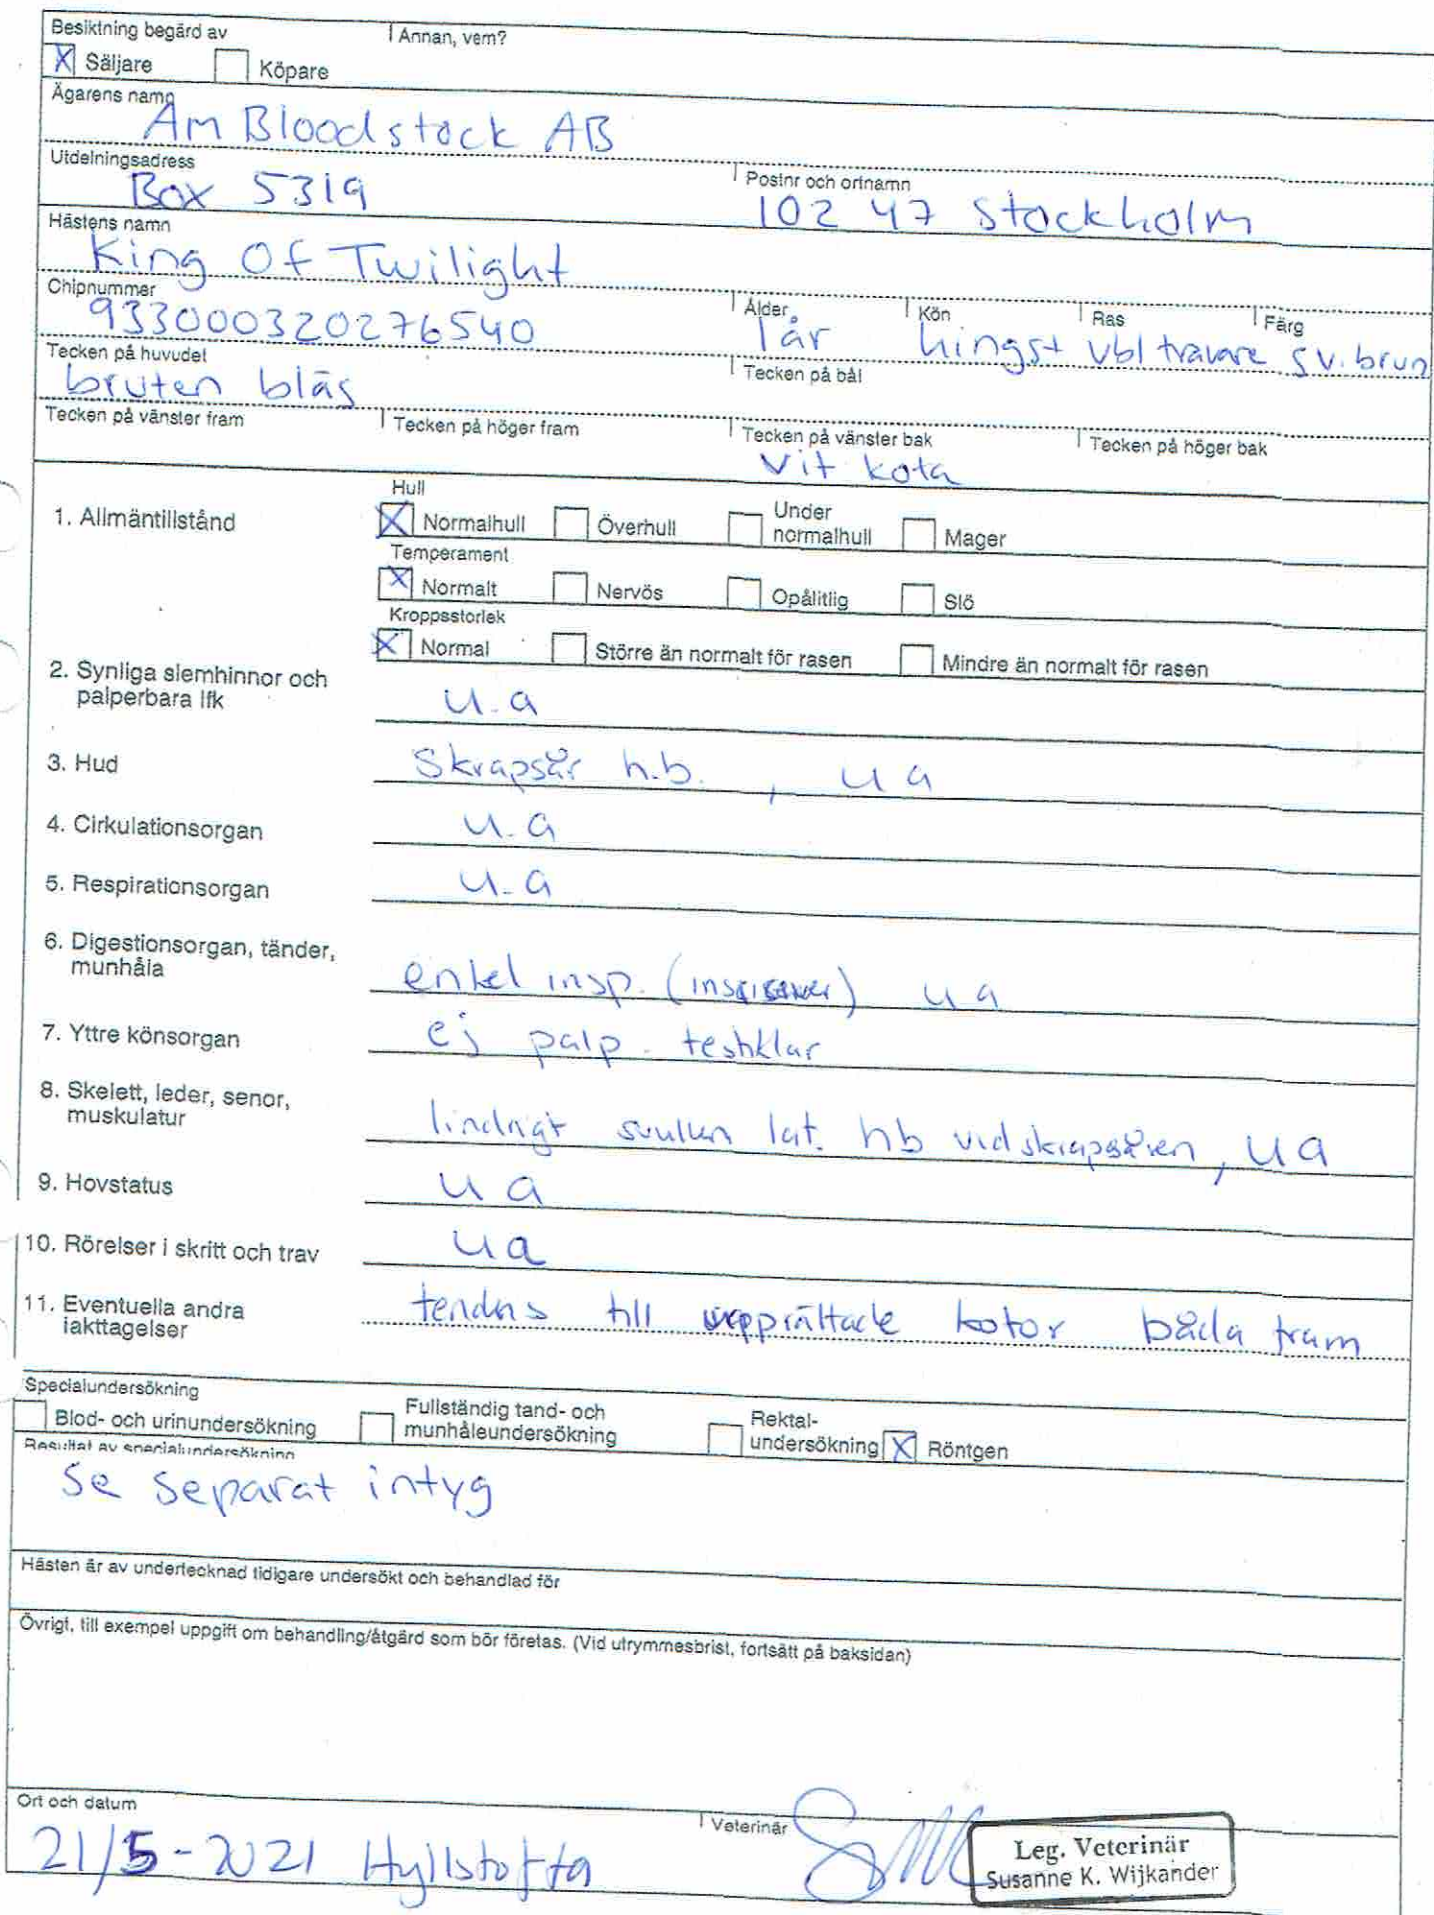 Besiktning begärd av Annan, vem?
X Säljare Köpare
Ägarens namn
Am Bloodstock AB
Utdelningsadress Postnr och ortnamn
Box 5319 102 47 Stockholm
Hästens namn
King Of Twilight
Chipnummer Ålder Kön Ras Färg
933000320276540 1 år hingst vbl travare sv. brun
Tecken på huvudet Tecken på bål
bruten bläs
Tecken på vänster fram Tecken på höger fram Tecken på vänster bak Tecken på höger bak
vit kota
Hull
1. Allmäntillstånd X Normalhull Överhull Under normalhull Mager
Temperament
X Normalt Nervös Opålitlig Slö
Kroppsstorlek
X Normal Större än normalt för rasen Mindre än normalt för rasen
2. Synliga slemhinnor och
palperbara lfk u.a
3. Hud Skrapsår h.b., u a
4. Cirkulationsorgan u.a
5. Respirationsorgan u.a
6. Digestionsorgan, tänder,
munhåla enkel insp. u a
7. Yttre könsorgan ej palp. testiklar
8. Skelett, leder, senor,
muskulatur lindrigt svullen lat. hb vid skrapsåren, u a
9. Hovstatus u a
10. Rörelser i skritt och trav u a
11. Eventuella andra
iakttagelser tendens till upprättade kotor båda fram
Specialundersökning
Blod- och urinundersökning Fullständig tand- och munhåleundersökning Rektal-undersökning X Röntgen
Resultat av specialundersökning
Se separat intyg
Hästen är av undertecknad tidigare undersökt och behandlad för
Övrigt, till exempel uppgift om behandling/åtgärd som bör företas. (Vid utrymmesbrist, fortsätt på baksidan)
Ort och datum Veterinär
21/5-2021 Hyllstofta
Leg. Veterinär
Susanne K. Wijkander